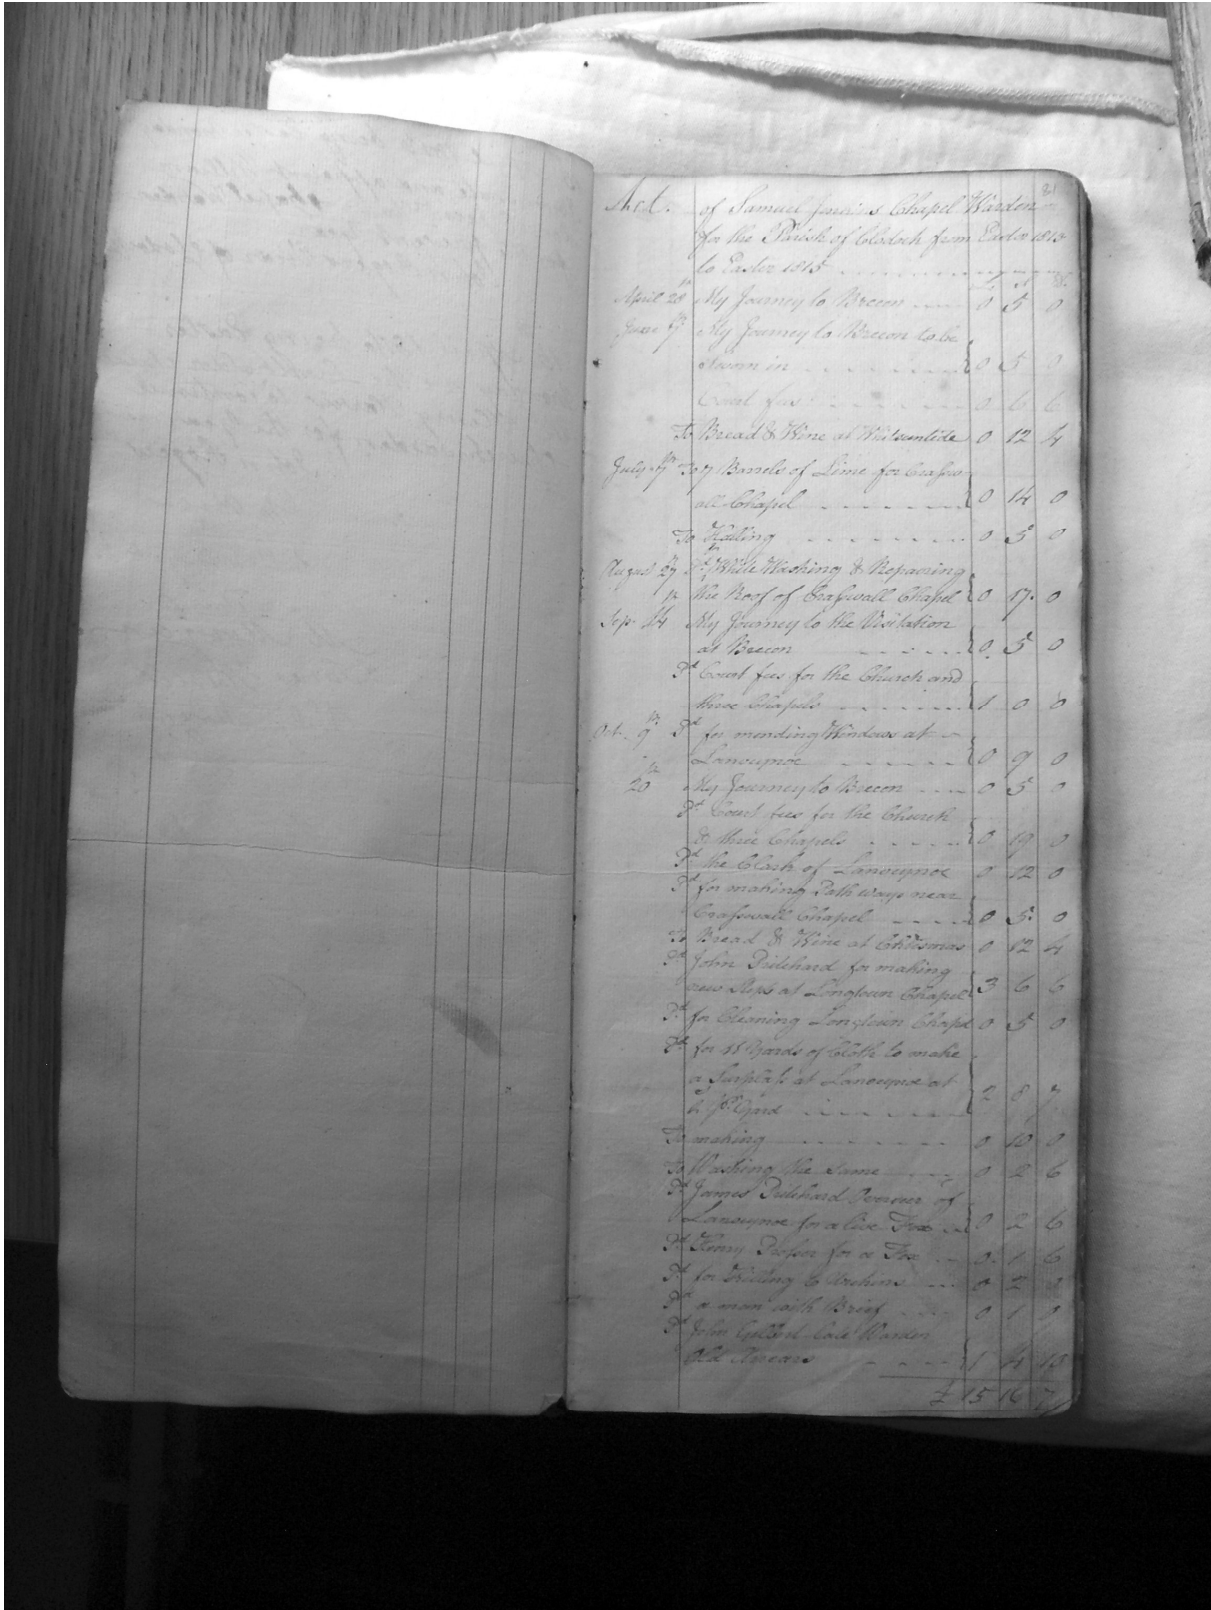 81
Acct. of Samuel Jenkins Chapel Warden
for the Parish of Clodock from Easter
to Easter 1815
April 28th My Journey to Brecon 0 5 0
June 7th My Journey to Brecon to be
Sworn in 0 5 0
Court fees 0 6 6
To Bread & Wine at Whitsuntide 0 12 4
July 7th To 7 Barrels of Lime for Crassw
all Chapel 0 14 0
To Halling 0 5 0
August 27th Pd for White Washing & Repairing
the Roof of Crasswall Chapel 0 17 0
Sep. 14th My Journey to the Visitation
at Brecon 0 5 0
Pd Court fees for the Church and
three Chapels 1 0 0
Oct. 9th Pd for mending Windows at
Lanveynoe 0 9 0
20th My Journey to Brecon 0 5 0
Pd Court fees for the Church
& three Chapels 0 19 0
Pd the Clark of Lanveynoe 0 12 0
Pd for making Path ways near
Crasswall Chapel 0 5 0
To Bread & Wine at Christmas 0 12 4
Pd John Pritchard for making
new Steps at Longtown Chapel 3 6 6
Pd for Cleaning Longtown Chapel 0 5 0
Pd for 11 Yards of Cloth to make
a Surplass at Lanveynoe at
Pr Yard 2 8 7
To making 0 10 0
To Washing the same 0 2 6
Pd James Pritchard Overseer of
Lanveynoe for a live Fox 0 2 6
Pd Henry Prosser for a Fox 0 1 6
Pd for Killing 6 Urchins 0 2 0
Pd a man with Brief 0 1 0
Pd John Gilbert Late Warden
Old Arrears 1 4 10
£ 15 16 7